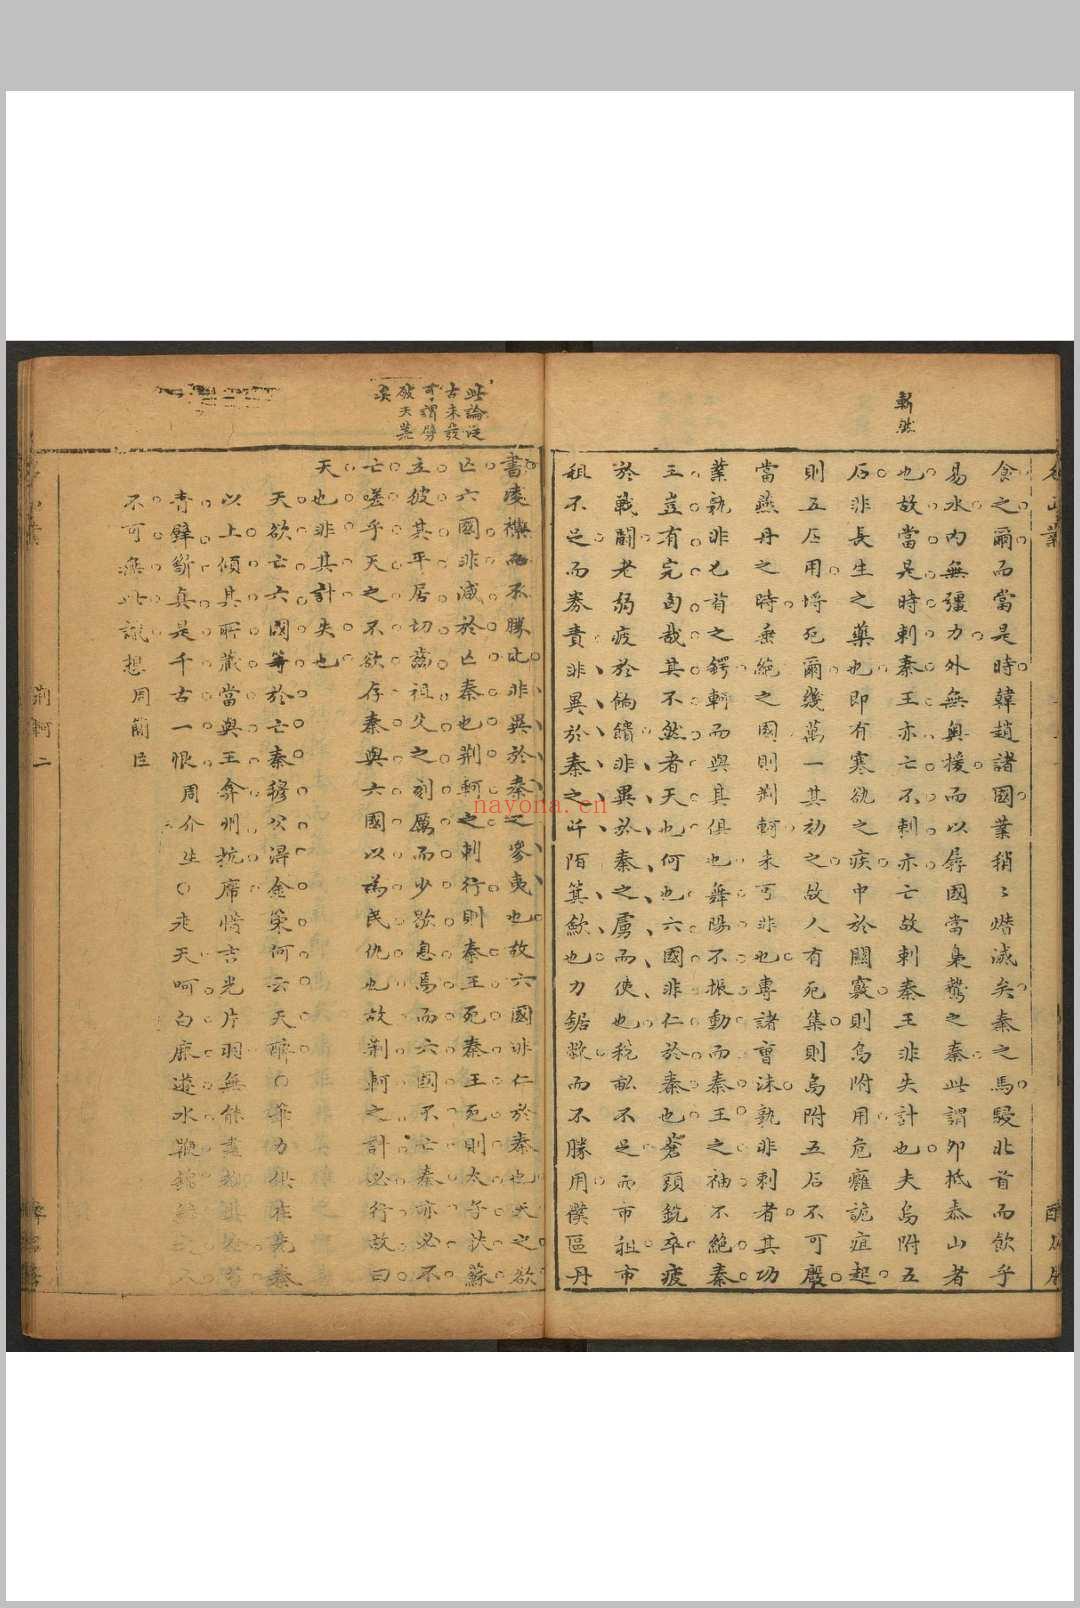 斬然
食之爾而當是時韓趙諸國業稍〻熸滅矣秦之馬騣北首而飲乎
易水內無彊力外無奧援而以孱國當梟鷙之秦此謂夘抵泰山者
也故當是時刺秦王亦亡不刺亦亡故刺秦王非失計也夫烏附五
石非長生之藥也即有寒欬之疾中於關竅則烏附用危癰詭疽起
則五石用埒死爾幾萬一其効之故人有死集則烏附五石不可廢
當燕丹之時垂絕之國則荊軻未可非也專諸曹沬孰非刺者其功
業孰非七首之鍔軻而與其俱也舞陽不振動而秦王之袖不絕秦
王豈有完匈哉其不然者天也何也六國非仁於秦也蒼頭銳卒疲
於戰鬭老弱疲於餉饋非異於秦之虜而使也稅畝不足而市租市
租不足而券責非異於秦之阡陌箕歛也刀鋸歉而不勝用僕區丹
此論從
古未發
可謂劈
破天荒
矣
書凌襍而不勝比非異於秦之參夷也故六國非仁於秦也天之欲
亡六國非減於亡秦也荊軻之刺行則秦王死秦王死則太子扶蘇
立彼其平居切齒祖父之刻厲而少歇息焉而六國不亡秦亦必不
亡嗟乎天之不欲存秦與六國以為民仇也故荊軻之計必行故曰
天也非其計失也
天欲亡六國等於亡秦穆公淂金策何云天醉○筆力俱在先秦
以上傾其所藏當與王弇州抗席惜吉光片羽無能
青鐸斷真是千古一恨周介生○
不可無此識想周簡臣
荊軻二
nayona.cn